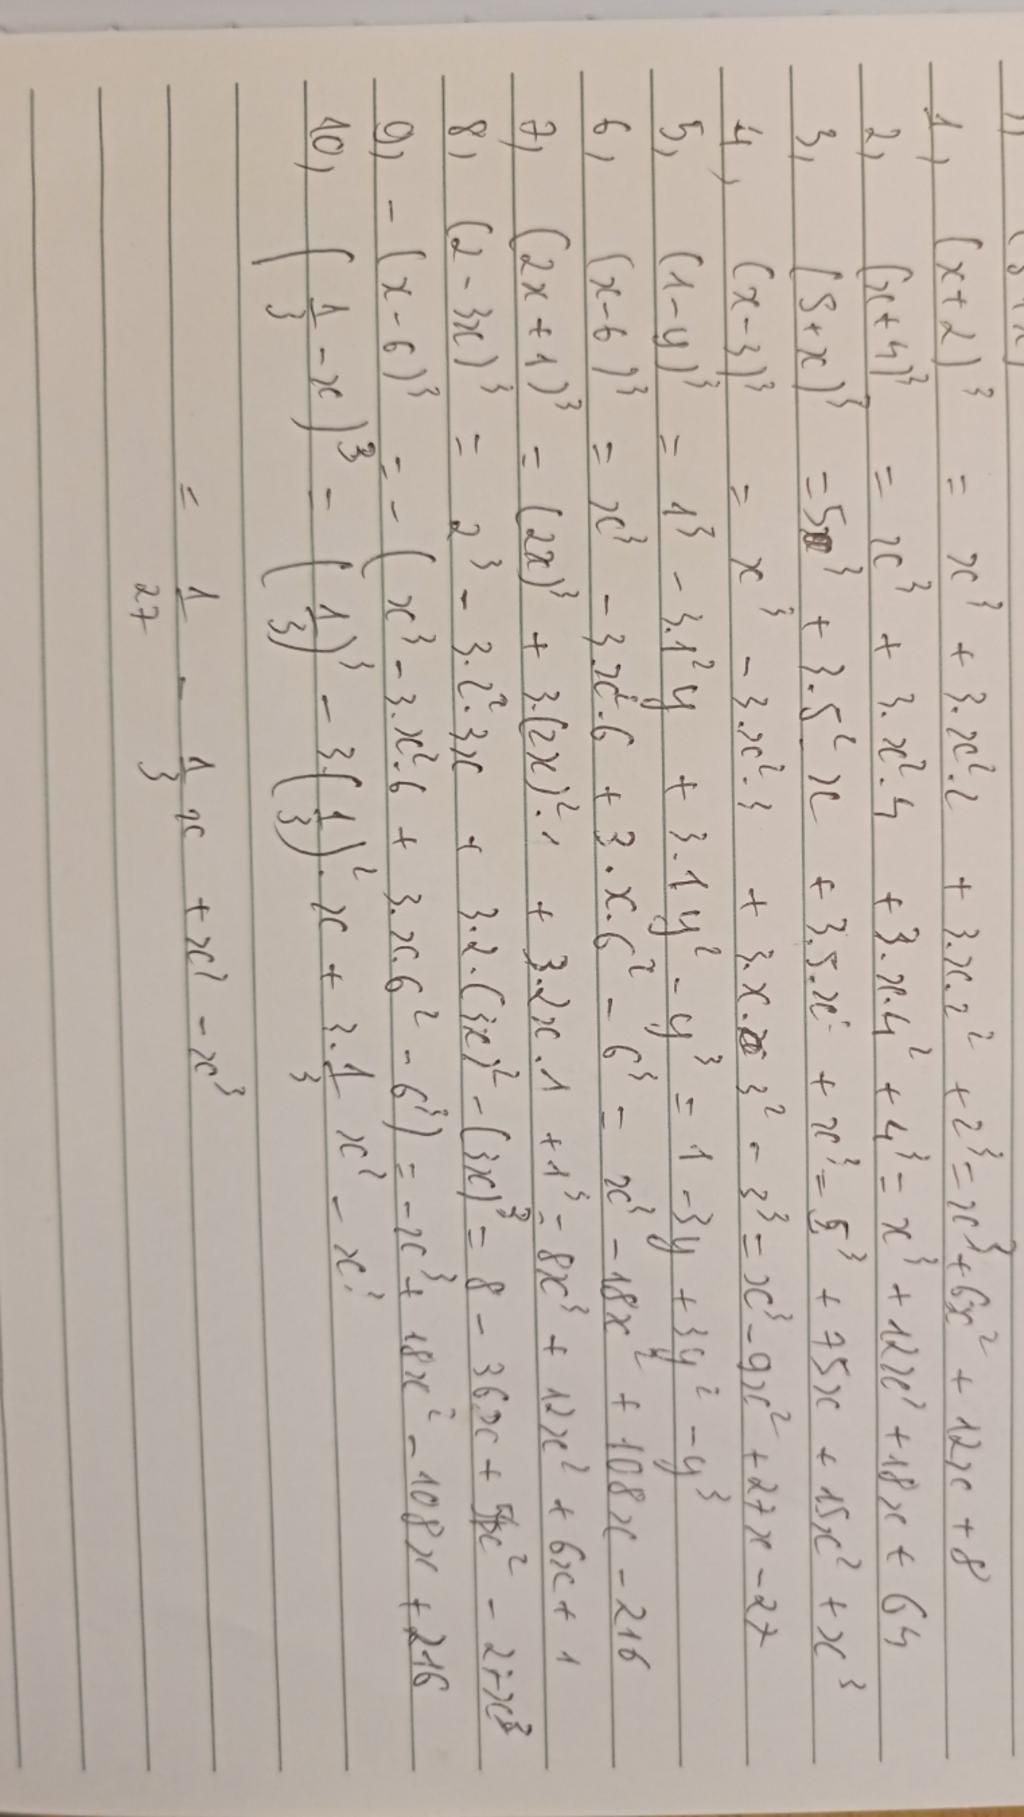 1, (x+2)³ = x³ + 3.x².2 + 3.x.2² + 2³ = x³ + 6x² + 12x + 8
2, (x+4)³ = x³ + 3.x².4 + 3.x.4² + 4³ = x³ + 12x² + 18x + 64
3, (5+x)³ = 5³ + 3.5².x + 3.5.x² + x³ = 5³ + 75x + 15x² + x³
4, (x-3)³ = x³ - 3.x².3 + 3.x.3² - 3³ = x³ - 9x² + 27x - 27
5, (1-y)³ = 1³ - 3.1²y + 3.1y² - y³ = 1 - 3y + 3y² - y³
6, (x-6)³ = x³ - 3.x².6 + 3.x.6² - 6³ = x³ - 18x² + 108x - 216
7, (2x+1)³ = (2x)³ + 3.(2x)².1 + 3.2x.1 + 1³ = 8x³ + 12x² + 6x + 1
8, (2-3x)³ = 2³ - 3.2².3x + 3.2.(3x)² - (3x)³ = 8 - 36x + 54x² - 27x³
9, -(x-6)³ = -(x³ - 3.x².6 + 3.x.6² - 6³) = -x³ + 18x² - 108x + 216
10, (1/3 - x)³ = (1/3)³ - 3.(1/3)².x + 3.1/3 x² - x³
= 1/27 - 1/3 x + x² - x³